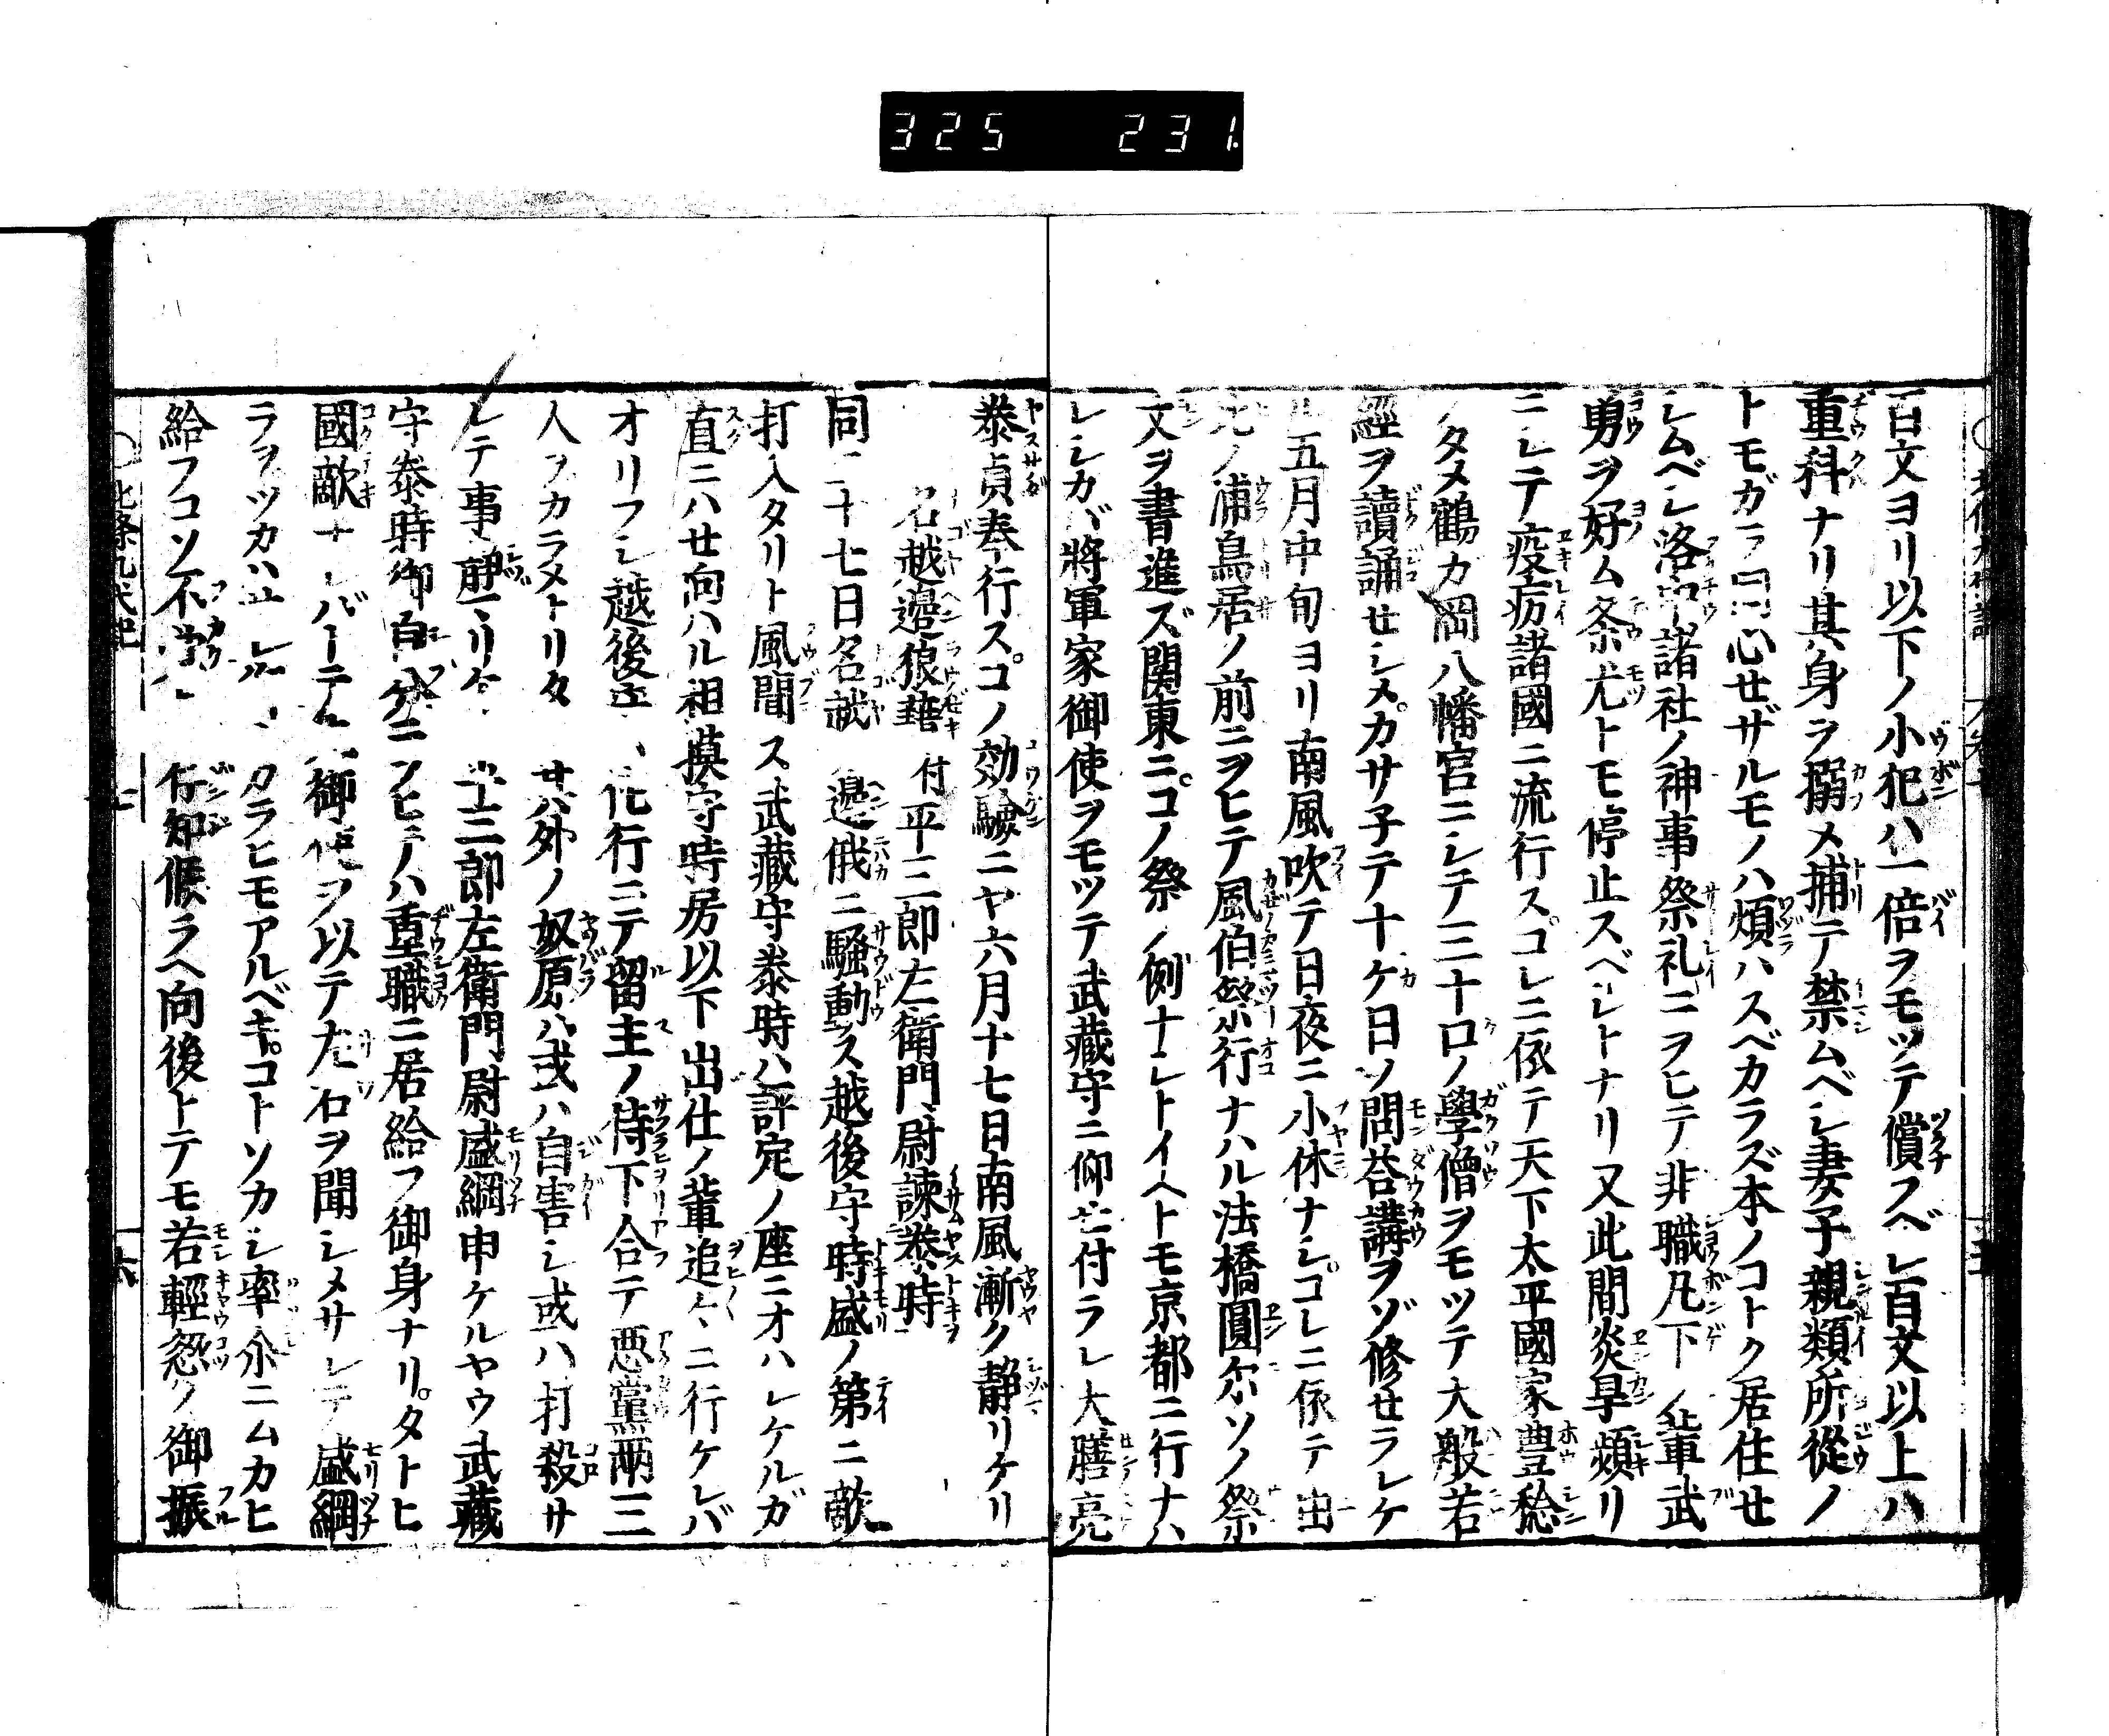 325 231.
百文ヨリ以下ノ小犯ハ一倍ヲモツテ償フベレ百文以上ハ
重科ナリ其身ヲ搦メ捕テ禁ムベシ妻子親類所從ノ
トモガラ同心セザルモノハ煩ハスベカラズ本ノコトク居住せ
シムベシ洛中諸社ノ神事祭礼ニヲヒテ非職凡下ノ輩武
勇ヲ好ム条尤トモ停止スベレトナリ又此間炎旱頻リ
ニレテ疫疠諸國ニ流行スコレニ依テ天下太平國家豊稔
ノタメ鶴カ岡八幡宮ニレテ三十口ノ學僧ヲモツテ大般若
經ヲ讀誦せシメカサ子テ十ケ日ソ問荅講ヲゾ修せラレケ
五月中旬ヨリ南風吹テ日夜ニ小休ナシコレニ依テ由
ノ浦鳥居ノ前ニヲヒテ風伯祭行ナハル法橋圓尓ソノ祭
文ヲ書進ズ関東ニコノ祭ノ例ナレトイヘトモ京都ニ行ナハ
レシカバ將軍家御使ヲモツテ武藏守ニ仰せ付ラレ大膳亮
泰貞奉行スコノ効驗ニヤ六月十七日南風漸ク静リケリ
名越邊狼藉 付平三郎左衛門尉諫泰時
同二十七日名越邊俄ニ騒動ス越後守時盛ノ第ニ敵
打入タリト風聞ス武藏守泰時ハ評定ノ座ニオハレケルガ
直ニハせ向ハル相摸守時房以下出仕ノ輩追々ニ行ケレバ
オリフレ越後 他行ニテ留主ノ侍下合テ悪黨両三
人ヲカラメトリタ 其外ノ奴原ハ或ハ自害シ或ハ打殺サ
レテ事静マリケ 平三郎左衛門尉盛綱申ケルヤウ武藏
守泰時御自分ニヲヒテハ重職ニ居給フ御身ナリタトヒ
國敵ナレバトテ 御使ヲ以テ左右ヲ聞シメサレテ盛綱
ラヲツカハ レハ カラヒモアルベキコトソカシ率尓ニムカヒ
給フコソ不覺 存知候ラヘ向後トテモ若輕忽ノ御振
北條九代記 六